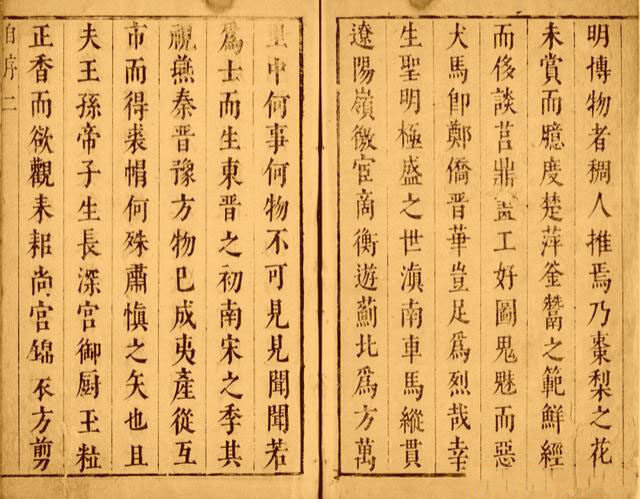 明博物者稠人推焉乃棗梨之花
未賞而臆度楚萍釜鬵之範鮮經
而侈談莒鼎畫工好圖鬼魅而惡
犬馬卽鄭僑晉華豈足爲烈哉幸
生聖明極盛之世滇南車馬縱貫
遼陽嶺徼宦商衡遊薊北爲方萬
里中何事何物不可見見聞聞若
爲士而生東晉之初南宋之季其
視燕秦晉豫方物已成夷產從互
市而得裘帽何殊肅慎之矢也且
夫王孫帝子生長深宮御厨玉粒
正香而欲觀耒耜尚宮錦衣方剪
自序 二